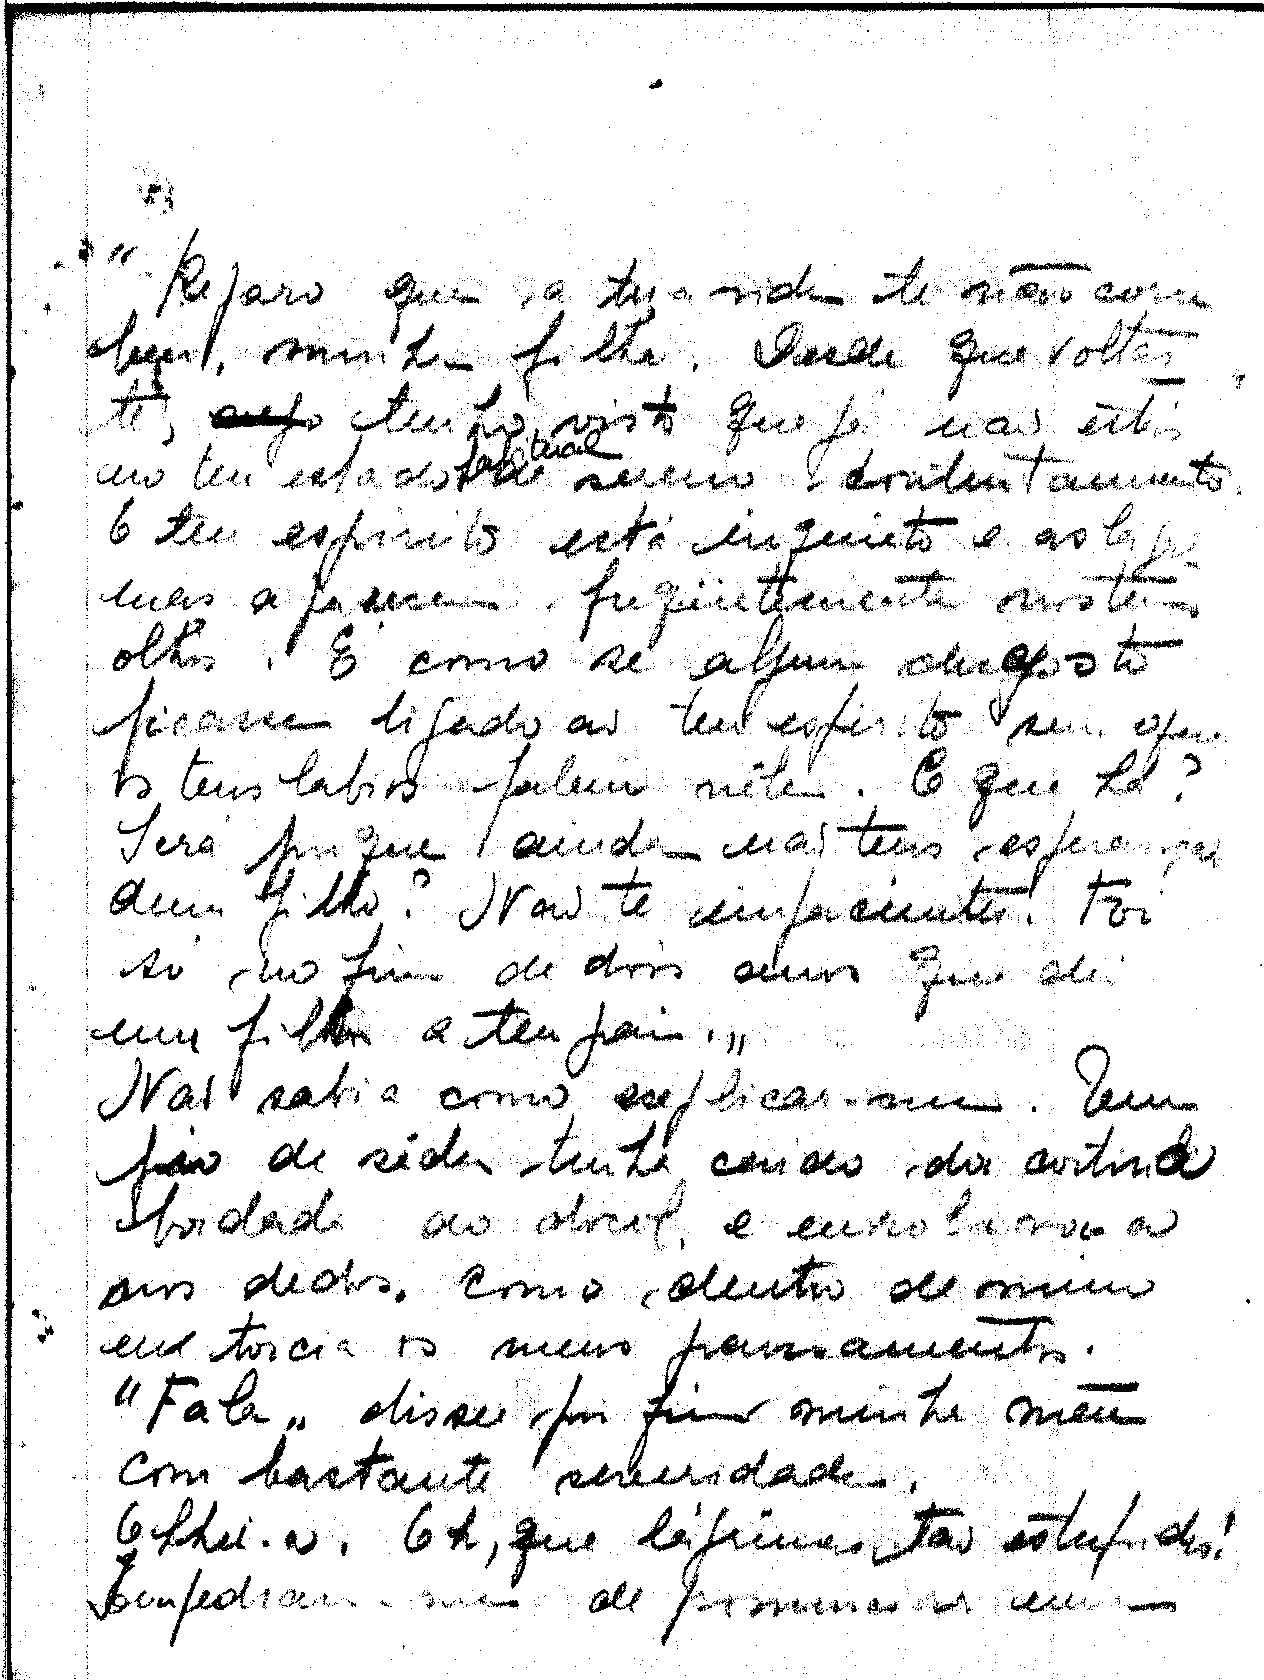 "Reparo que a tua vida te não corre
bem, minha filha. Desde que voltas-
te, tenho visto que já não estás
no teu estado habitual de sereno contentamento.
O teu espirito está inquieto e as lagri-
mas aparecem freqüentemente nos teus
olhos. É como se algum desgosto
ficasse ligado ao teu espirito sem que
os teus labios falem nêle. O que há?
Será porque ainda não tens esperanças
dum filho? Não te impacientes. Foi
só no fim de dois anos que dei
um filho a teu pai."
Não sabia como explicar-me. Um
fio de sêda tinha caído da cortina
bordada do docel, e enrolava-o
nos dedos, como dentro de mim
eu torcia os meus pensamentos.
"Fala" disse por fim minha mãe
com bastante severidade.
Olhei-a. Oh, que lágrimas tão estupidas!
Impediram-me de pronunciar uma